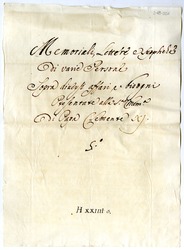 Memoriali, Lettere e Suppliche
Di varie Persone
Sopra diversi affari e bisogni
Presentate alla S.
Di Papa Clemente XI.
H XXIIII